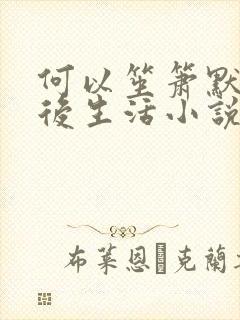 何以笙箫默
後生活小説
布萊恩克蘭